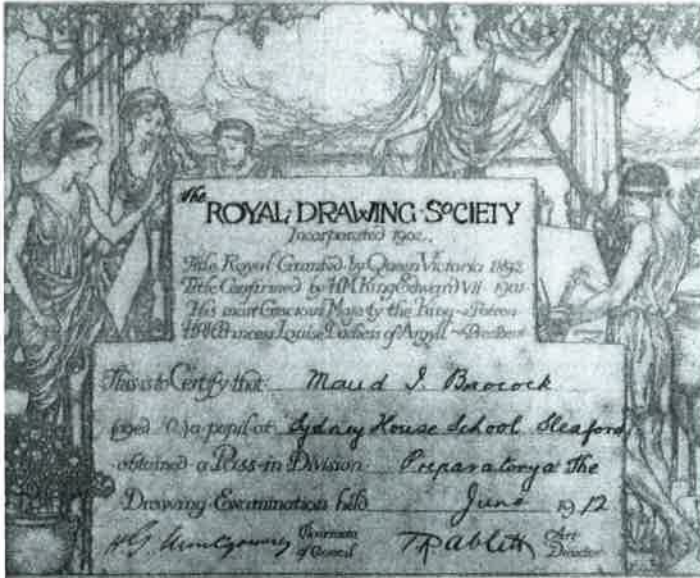 The ROYAL DRAWING SOCIETY
Incorporated 1902.
Title Royal Granted by Queen Victoria 1892
Title Confirmed by H.M. King Edward VII 1901
His most Gracious Majesty the King - Patron
H.R.H. Princess Louise Duchess of Argyll - President
This is to Certify that Maud I.
aged a pupil at Sydney House School Sleaford
obtained a Pass in Division Preparatory at The
Drawing Examination held June 1912
Chairman of Council T.R. Ablett Art Director